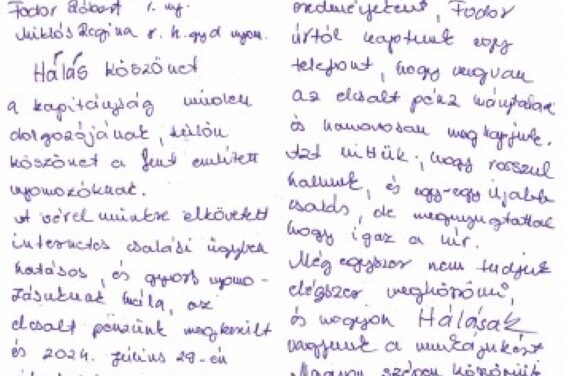 Fodor Róbert r. ny.
Miklós Regina r. h. gyd nyom.
Hálás köszönet
a kapitányság minden
dolgozójának, külön
köszönet a fent említett
nyomozóknak.
A vérel minkre elkövetett
internetes csalási ügyben
hatásos, és gyors nyomo-
zásuknak hála, az
elcsalt pénzünk megkerült
és 2024. július 29-én
eredményeként, Fodor
úrtól kaptunk egy
telefont, hogy megvan
az elcsalt pénz
és hamarosan megkapjuk.
Azt hittük, hogy rosszul
hallunk, és egy-egy újabb
csalás, de megnyugtattak
hogy igaz a hír.
Még egyszer nem tudjuk
elégszer megköszönni,
és nagyon Hálásak
vagyunk a munkájukért
Nagyon szépen köszönjük